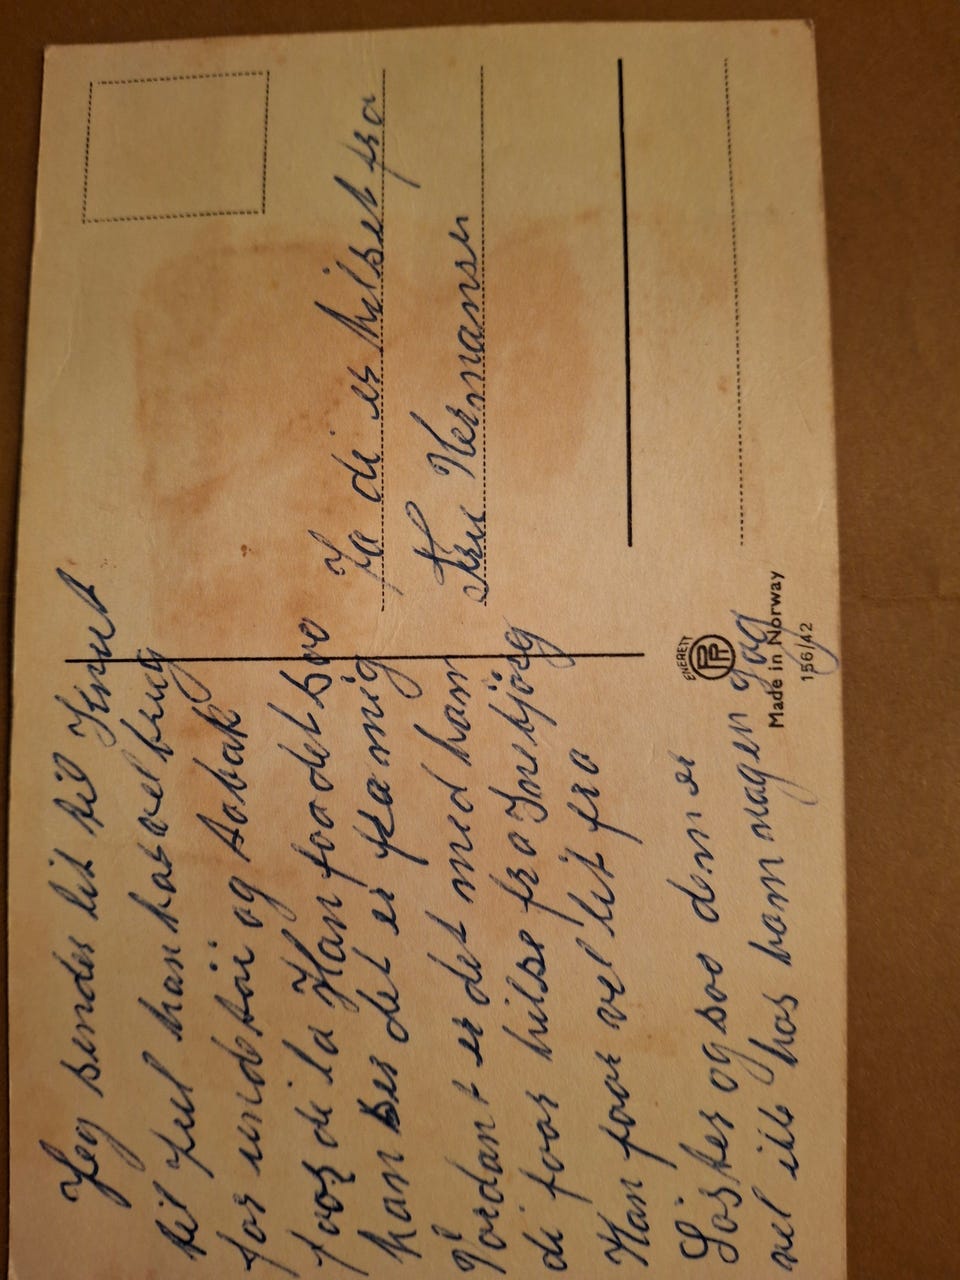 Jeg sender lit til Knut
til Jul han har vel brug
for undetöi og tobak
foor di la Han foodet soo
han ser det er fra mig
Vordan er det med ham
di foor hilse fra Inebjörg
Han foor vel lit fra
Söster ogsoo den er
vel ikke hos ham nagen gag
Ja di er hilset fra
Fru Hermansen
ENERETT
Made in Norway
156/42